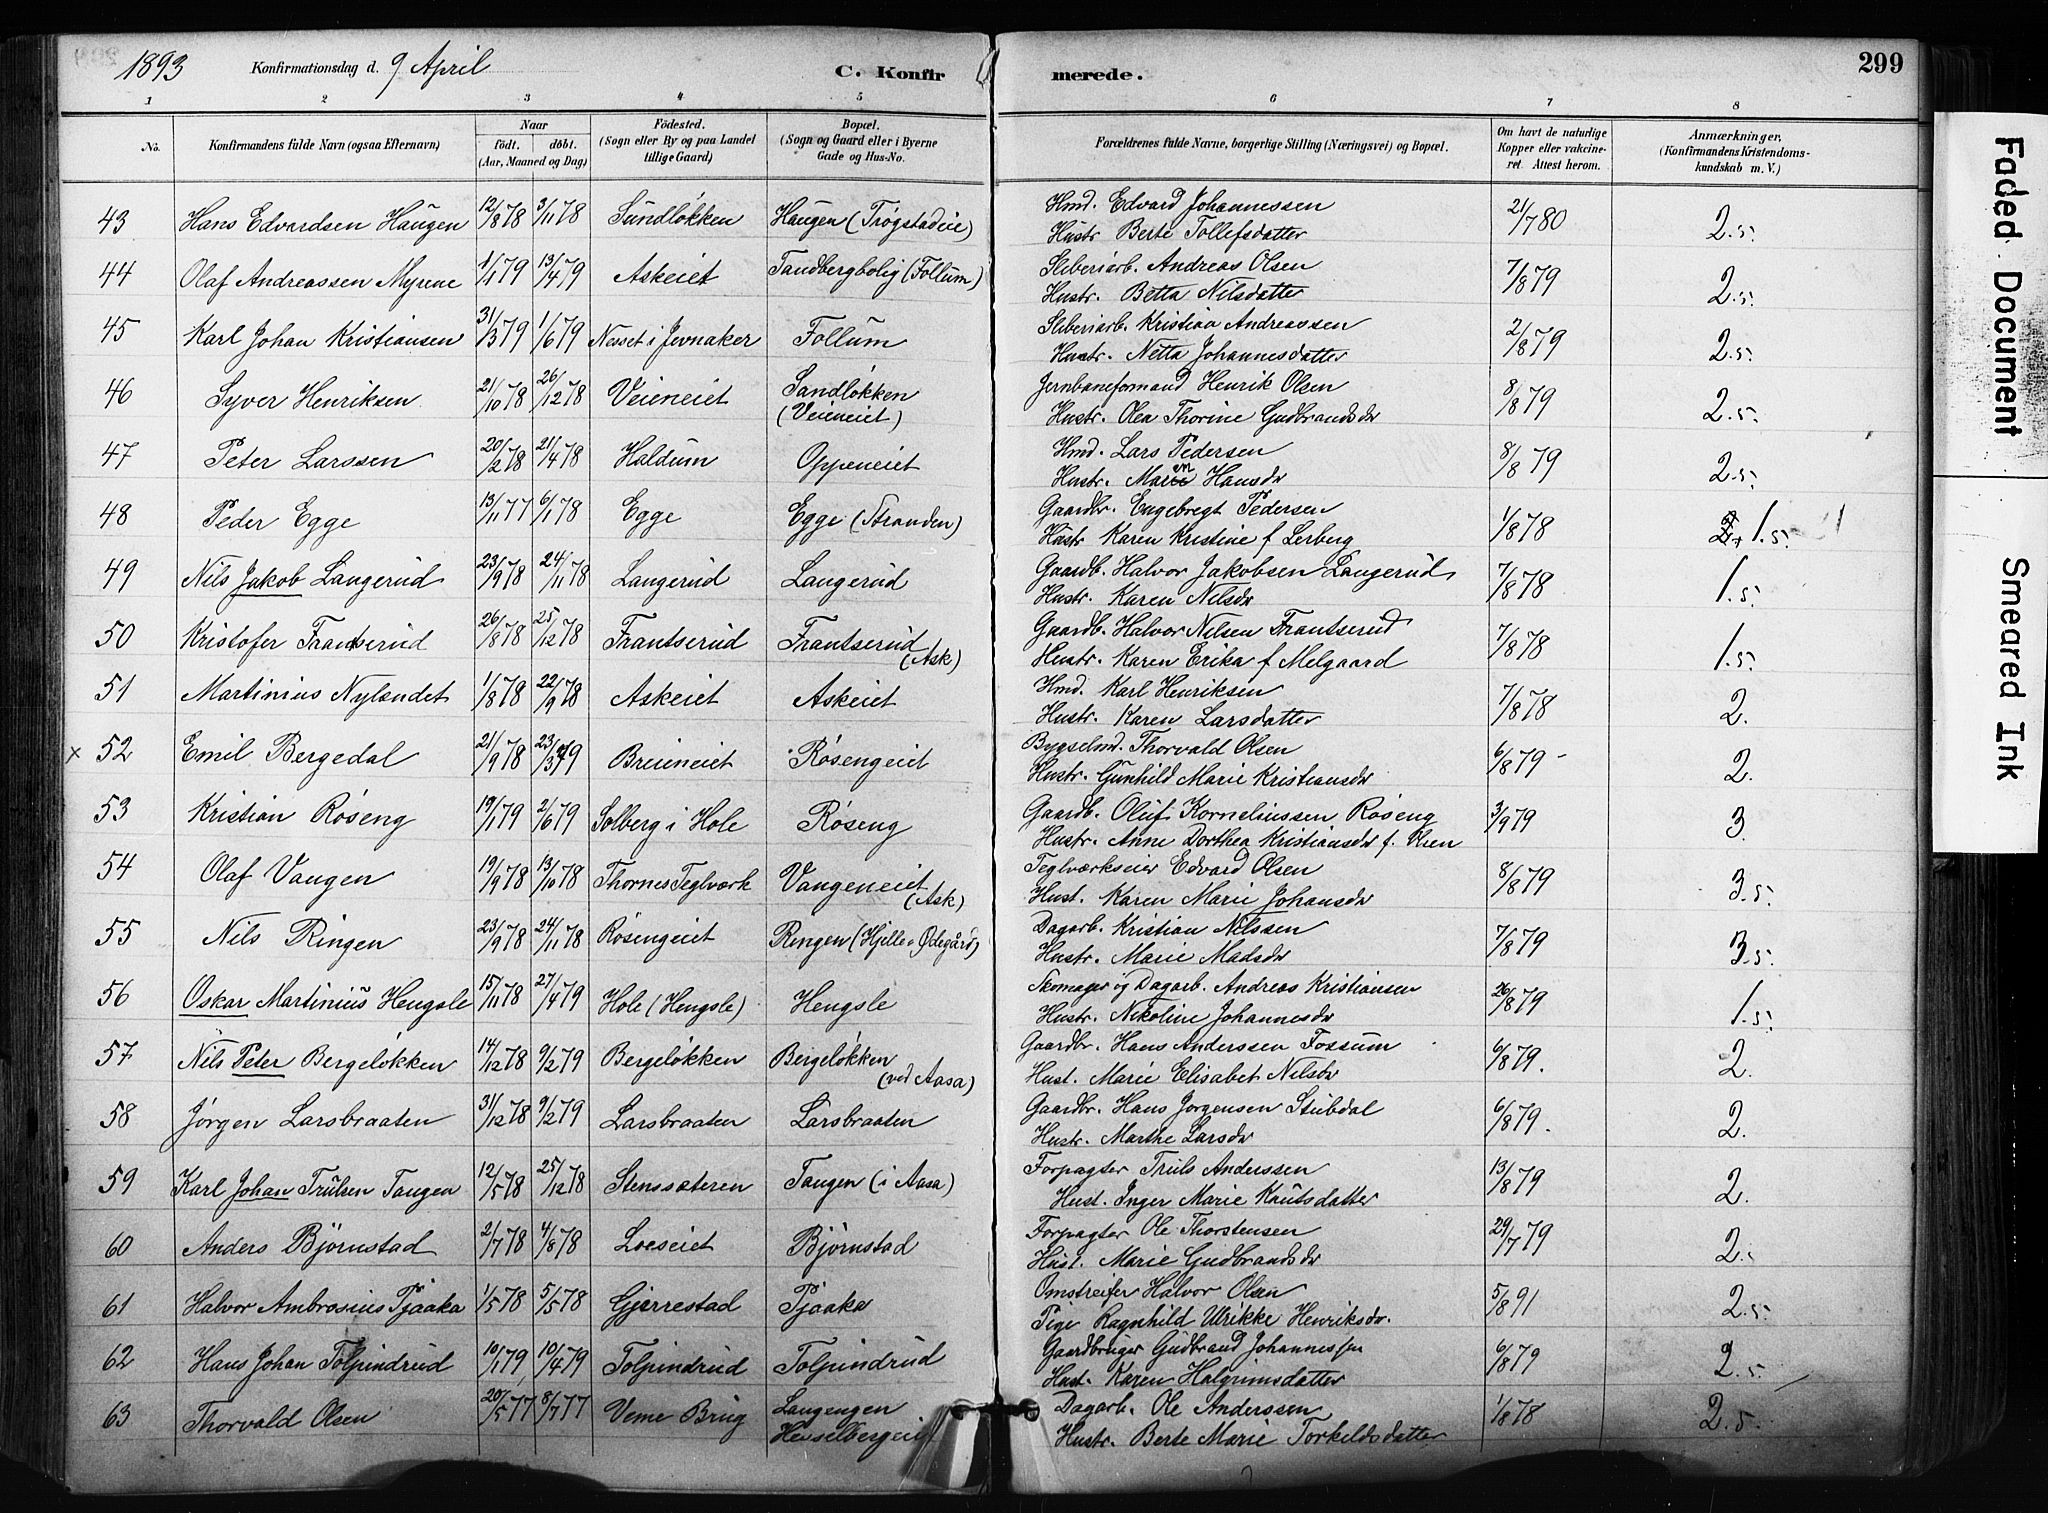 1893 Konfirmationsdag d. 9 April C. Konfirmerede. 299
1 2 3 4 5 6 7 8
No. Konfirmandens fulde Navn (ogsaa Efternavn) Naar født. døbt. (Aar, Maaned og Dag) Fødested. (Sogn eller By og paa Landet tillige Gaard) Bopæl. (Sogn og Gaard eller i Byerne Gade og Hus-No. Forældrenes fulde Navne, borgerlige Stilling (Næringsvei) og Bopæl. Om havt de naturlige Kopper eller vakcineret. Attest herom. Anmærkninger, (Konfirmandens Kristendomskundskab m. V.)
43 Hans Edvardsen Haugen 12/8 78 3/11 78 Sundløkken Haugen (Trøgstadeie) Hmd. Edvard Johannessen 21/7 80 2.5.
Hustr Berte Tollefsdatter
44 Olaf Andreassen Myrene 1/1 79 13/4 79 Askeiet Tandbergbolig (Follum) Sliberiarb. Andreas Olsen 7/8 79 2.5.
Hustr. Betta Nilsdatter
45 Karl Johan Kristiansen 31/3 79 1/6 79 Nesset i Jevnaker Follum Sliberiarb. Kristian Andreassen 2/8 79 2.5.
Hustr. Netta Johannesdatter
46 Syver Henriksen 21/10 78 26/12 78 Veieneiet Sandløkken (Veieneiet) Jernbaneformand Henrik Olsen 8/8 79 2.5.
Hustr. Olea Thorine Gudbrandsdr
47 Peter Larssen 20/2 78 21/4 78 Haldum Oppeneiet Hmd. Lars Pedersen 8/8 79 2.5.
Hustr. Maren Hansdr
48 Peder Egge 13/11 77 6/1 78 Egge Egge (Stranden) Gaardbr. Engebregt Pedersen 1/8 78 1.5.
Hustr Karen Kristine f Lerberg
49 Nils Jakob Langerud 23/9 78 24/11 78 Langerud Langerud Gaardb. Halvor Jakobsen Langerud 7/8 78 1.5.
Hustr. Karen Nilsdr
50 Kristofer Frantserud 26/8 78 25/12 78 Frantserud Frantserud (Ask) Gaardb. Halvor Nilsen Frantserud 7/8 78 1.5.
Hustr. Karen Erika f Melgaard
51 Martinius Nylandet 1/8 78 22/9 78 Askeiet Askeiet Hmd. Karl Henriksen 7/8 78 2.
Hustr. Karen Larsdatter
x 52 Emil Bergedal 21/9 78 23/3 79 Breieneiet Røsengeiet Bygselmd. Thorvald Olsen 6/8 79 2.
Hustr. Gunhild Marie Kristiansdr
53 Kristian Røseng 19/1 79 2/6 79 Solberg i Hole Røseng Gaardb. Oluf Korneliussen Røseng 3/9 79 3
Hustr. Anne Dorthea Kristiansdr f. Olsen
54 Olaf Vangen 19/9 78 13/10 78 Thornes Teglværk Vangeneiet (Ask) Teglværkseier Edvard Olsen 8/8 79 3.5.
Hust. Karen Marie Johansdr
55 Nils Ringen 23/9 78 24/11 78 Røsengeiet Ringen (Hjelle-Ødegård) Dagarb. Kristian Nilssen 7/8 79 3.5.
Hustr. Marie Madsdr
56 Oskar Martinius Hengsle 15/11 78 27/4 79 Hole (Hengsle) Hengsle Skomager og Dagarb. Andreas Kristiansen 26/8 79 1.5.
Hustr. Nikoline Johannesdr
57 Nils Peter Bergeløkken 14/12 78 9/2 79 Bergeløkken Bergeløkken (ved Aasa) Gaardbr. Hans Anderssen Fossum 6/8 79. 2.
Hust. Marie Elisabet Nilsdr
58 Jørgen Larsbraaten 31/12 78 9/2 79 Larsbraaten Larsbraaten Gaardbr. Hans Jørgensen Stubdal 6/8 79. 2.
Hustr. Marthe Larsdr
59 Karl Johan Trulsen Tangen 12/5 78 25/12 78 Stenssæteren Tangen (i Aasa) Forpagter Truls Anderssen 13/8 79 2.
Hust. Inger Marie Knutsdatter
60 Anders Bjørnstad 2/7 78 4/8 78 Loeseiet Bjørnstad Forpagter Ole Thorstensen 29/7 79 2.
Hust. Marie Gudbrandsdr
61 Halvor Ambrosius Pjaaka 1/5 78 5/5 78 Gjerrestad Pjaaka Omstreifer Halvor Olsen 5/8 91 2.5.
Pige Ragnhild Ulrikke Henriksdr.
62 Hans Johan Tolpindrud 10/1 79 10/4 79 Tolpindrud Tolpindrud Gaardbruger Gudbrand Johannessen 6/8 79 2.5.
Hust. Karen Halgrimsdatter
63 Thorvald Olsen 20/5 77 8/7 77 Veme Brug Langengen Hesselbergeiet Dagarb. Ole Anderssen 1/8 78 2.5.
Hustr. Berte Marie Torkeldsdatter
Faded Document
Smeared Ink